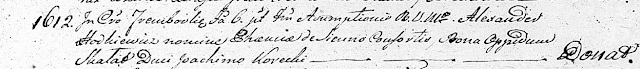 1612. In Cro Trembowlen. Fa 6. pt Im Assumptionis B.V.Mæ. Alexander
Hodkiewicz nomine Phæniæ de Sienno Consortis Bona Oppidum
Skałat Dnui Joachimo Korecki Donat.